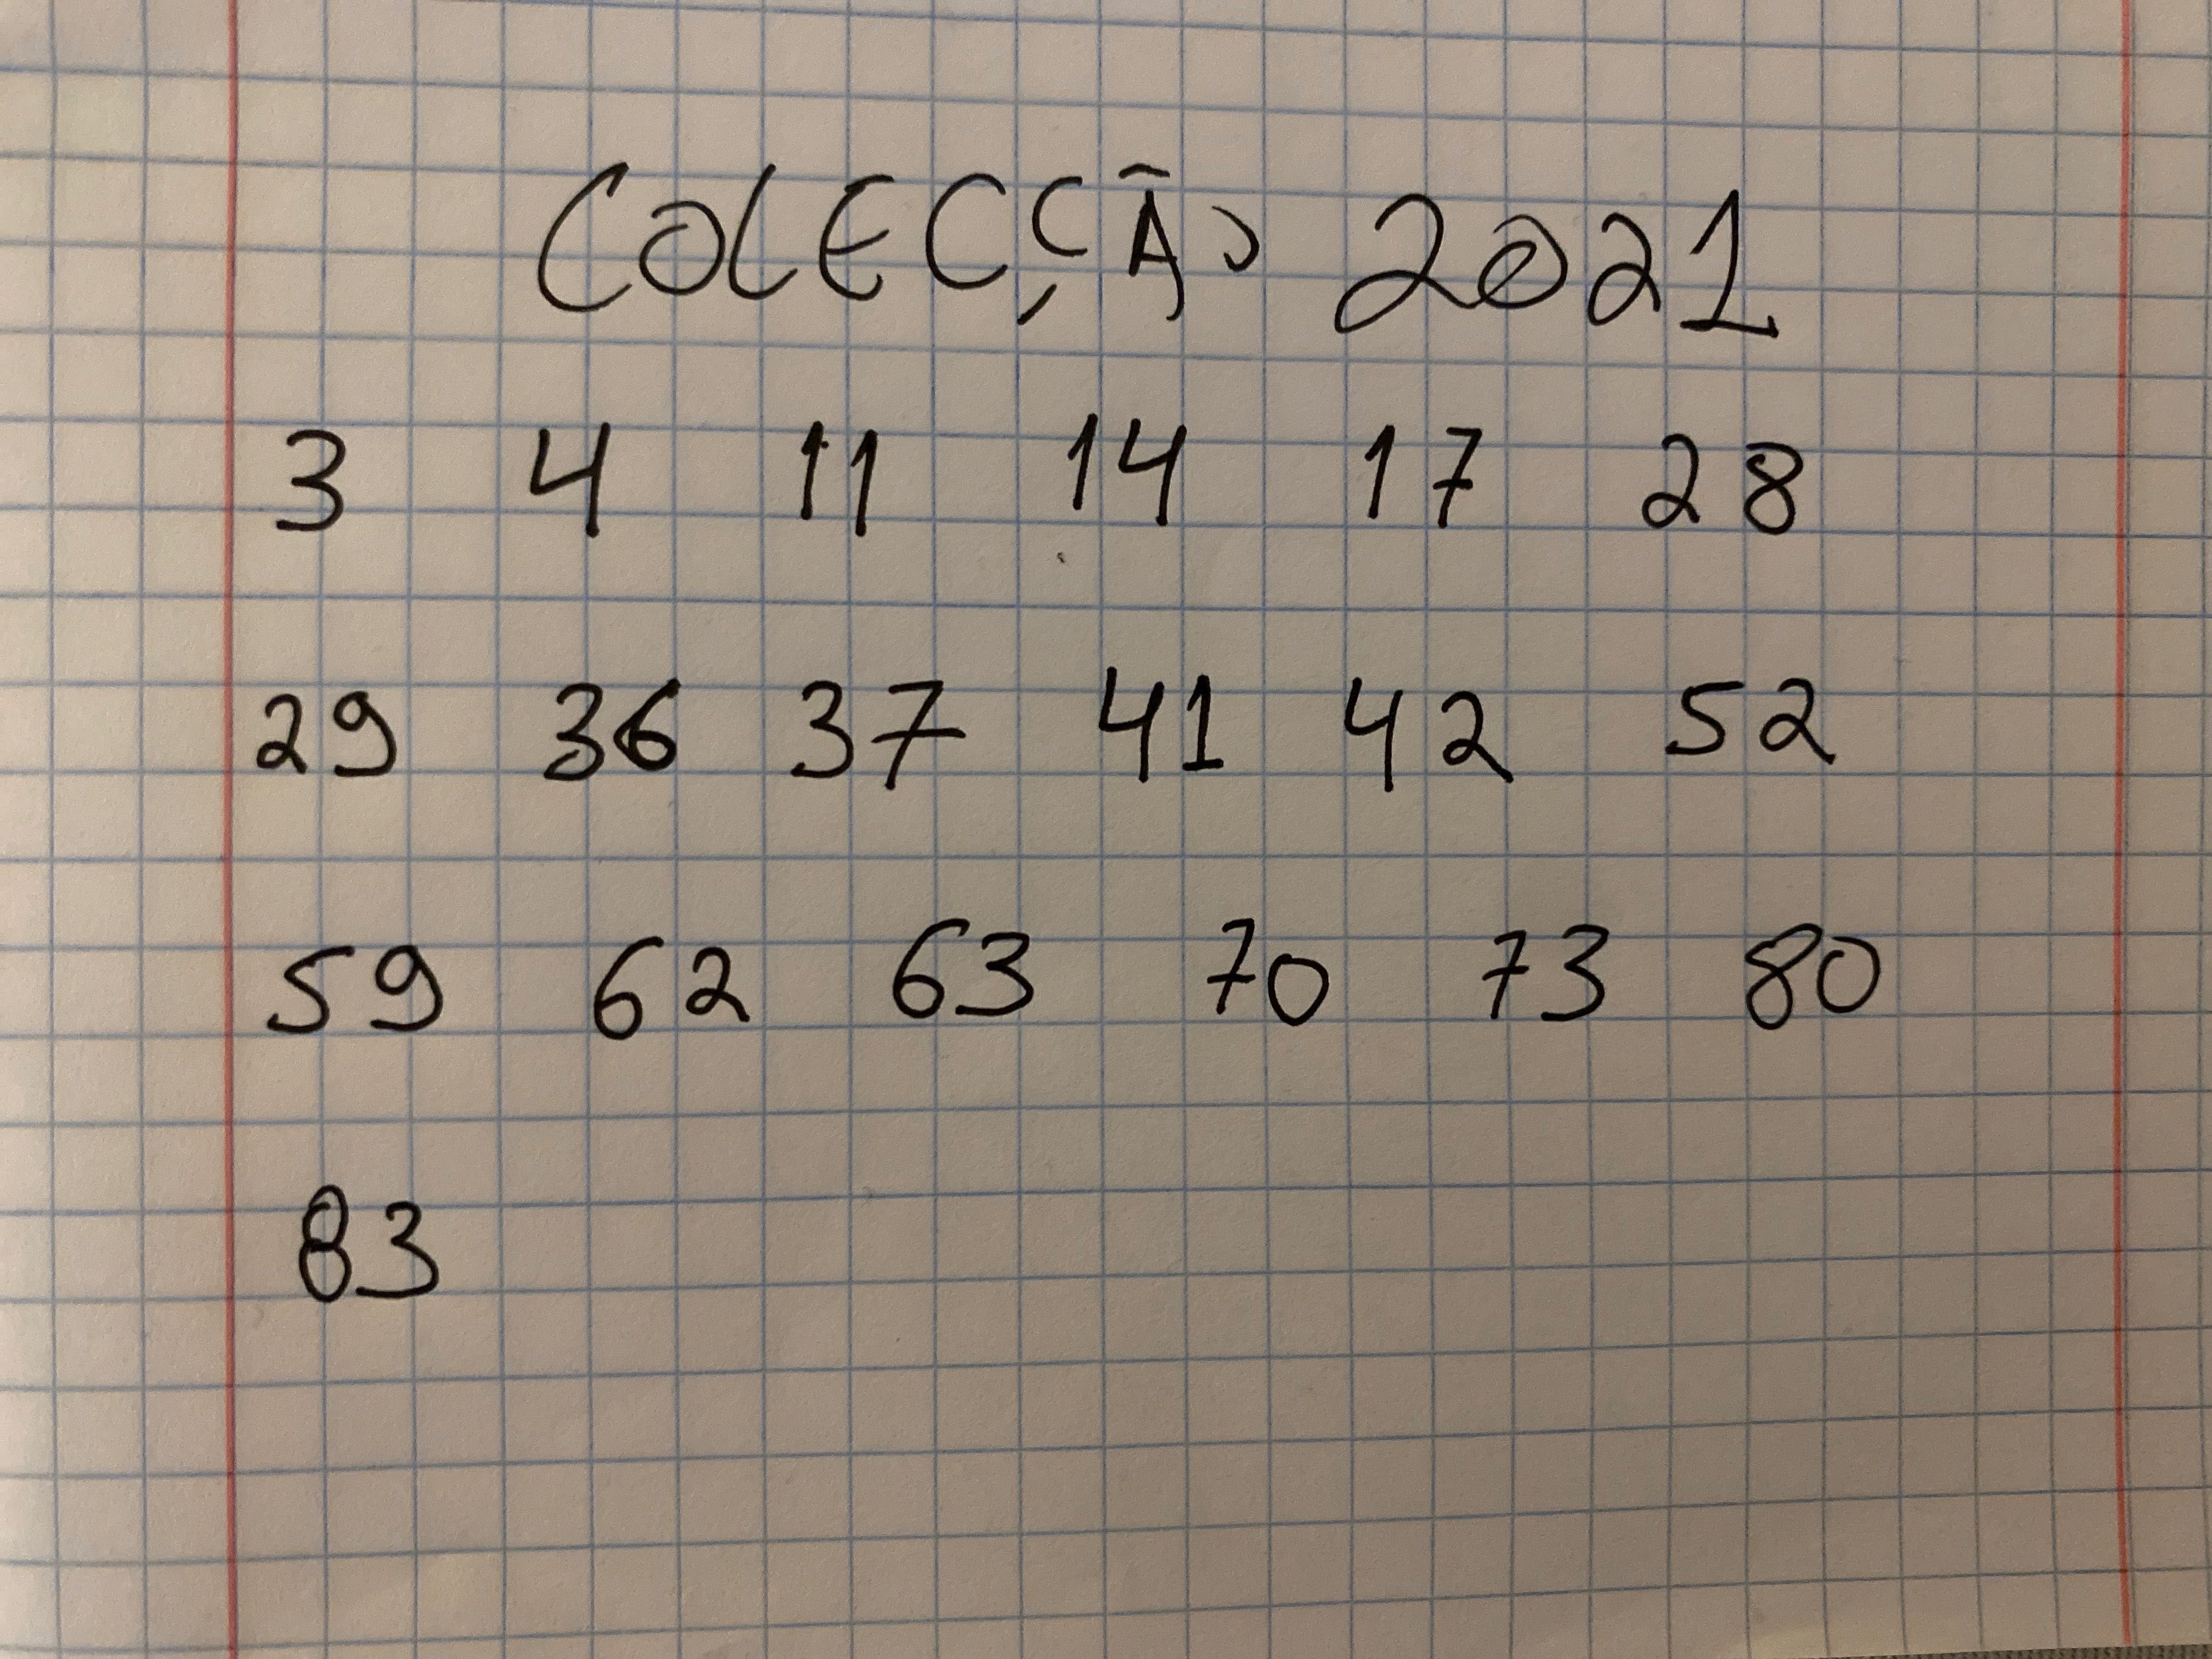 COLECÇÃO 2021
3 4 11 14 17 28
29 36 37 41 42 52
59 62 63 70 73 80
83